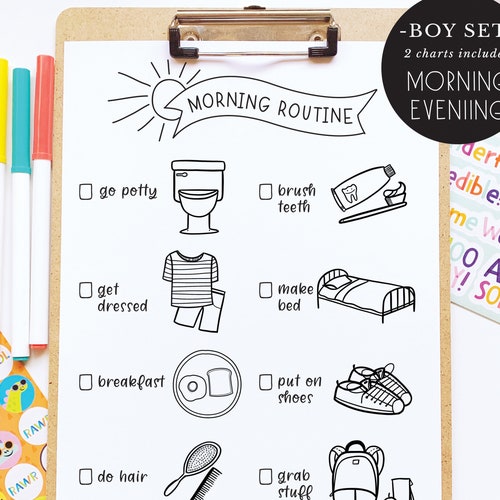 -BOY SET
2 charts include
MORNING
EVENIING
MORNING ROUTINE
go potty
brush
teeth
get
dressed
make
bed
breakfast
put on
shoes
do hair
grab
stuff
edible!
me W
OO A
Y! SO
RAWR
RAWR